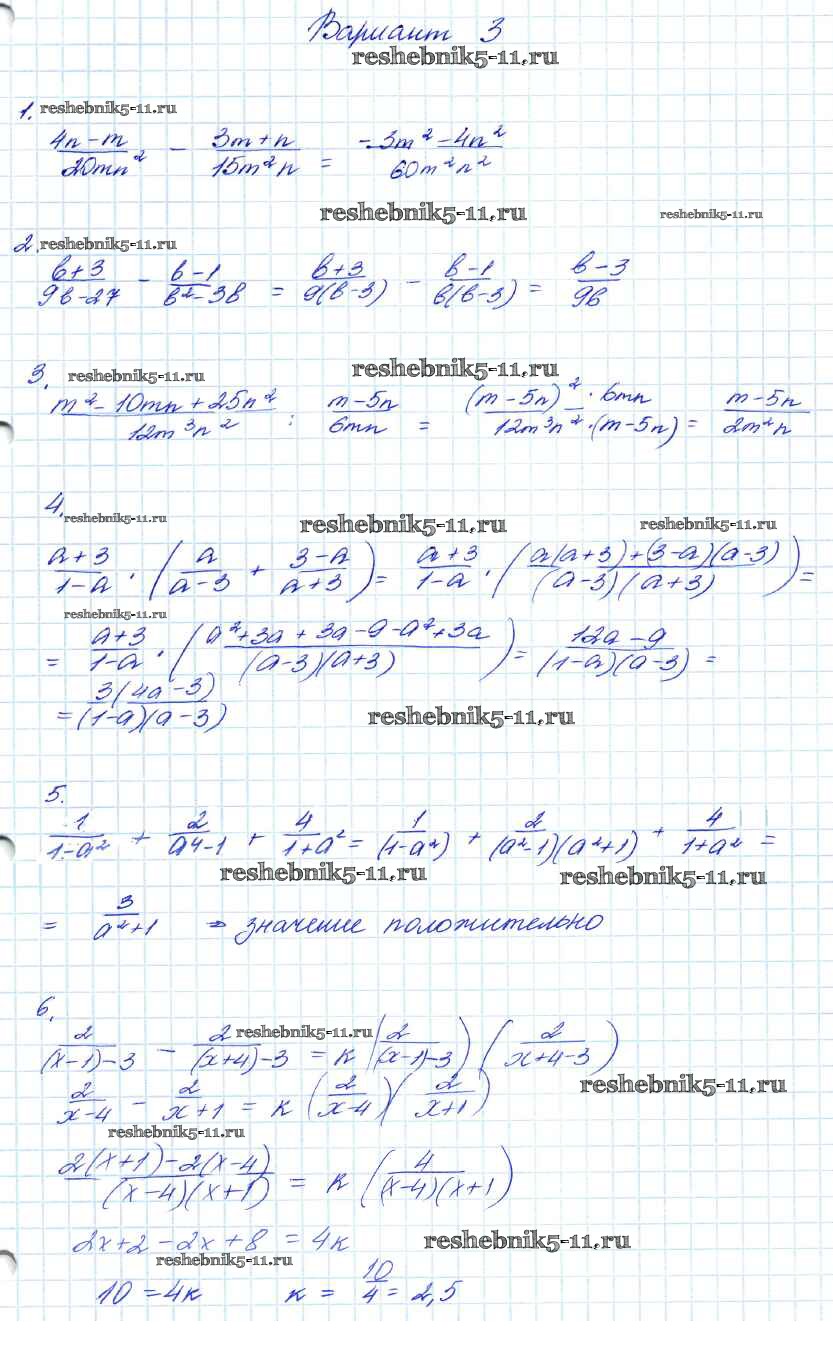 Вариант 3
reshebnik5-11.ru
1. reshebnik5-11.ru
(4n-m)/(20mn²) - (3m+n)/(15m²n) = (-3m²-4n²)/(60m²n²)
reshebnik5-11.ru reshebnik5-11.ru
2. reshebnik5-11.ru
(в+3)/(9в-27) - (в-1)/(в²-3в) = (в+3)/(9(в-3)) - (в-1)/(в(в-3)) = (в-3)/(9в)
3. reshebnik5-11.ru reshebnik5-11.ru
(m²-10mn+25n²)/(12m³n²) : (m-5n)/(6mn) = ((m-5n)²·6mn)/(12m³n²·(m-5n)) = (m-5n)/(2m²n)
4. reshebnik5-11.ru reshebnik5-11.ru reshebnik5-11.ru
(a+3)/(1-a) · (a/(a-3) + (3-a)/(a+3)) = (a+3)/(1-a) · ((a(a+3)+(3-a)(a-3))/((a-3)(a+3))) =
reshebnik5-11.ru
= (a+3)/(1-a) · ((a²+3a+3a-9-a²+3a)/((a-3)(a+3))) = (12a-9)/((1-a)(a-3)) =
= (3(4a-3))/((1-a)(a-3)) reshebnik5-11.ru
5.
1/(1-a²) + 2/(a4-1) + 4/(1+a²) = 1/(1-a²) + 2/((a²-1)(a²+1)) + 4/(1+a²) =
reshebnik5-11.ru reshebnik5-11.ru
= 3/(a²+1) ⇒ значение положительно
6.
reshebnik5-11.ru
2/((x-1)-3) - 2/((x+4)-3) = к (2/((x-1)-3)) (2/(x+4-3))
reshebnik5-11.ru
2/(x-4) - 2/(x+1) = к (2/(x-4))(2/(x+1))
reshebnik5-11.ru
(2(x+1)-2(x-4))/((x-4)(x+1)) = к (4/((x-4)(x+1)))
2x+2-2x+8 = 4к reshebnik5-11.ru
reshebnik5-11.ru
10 = 4к к = 10/4 = 2,5